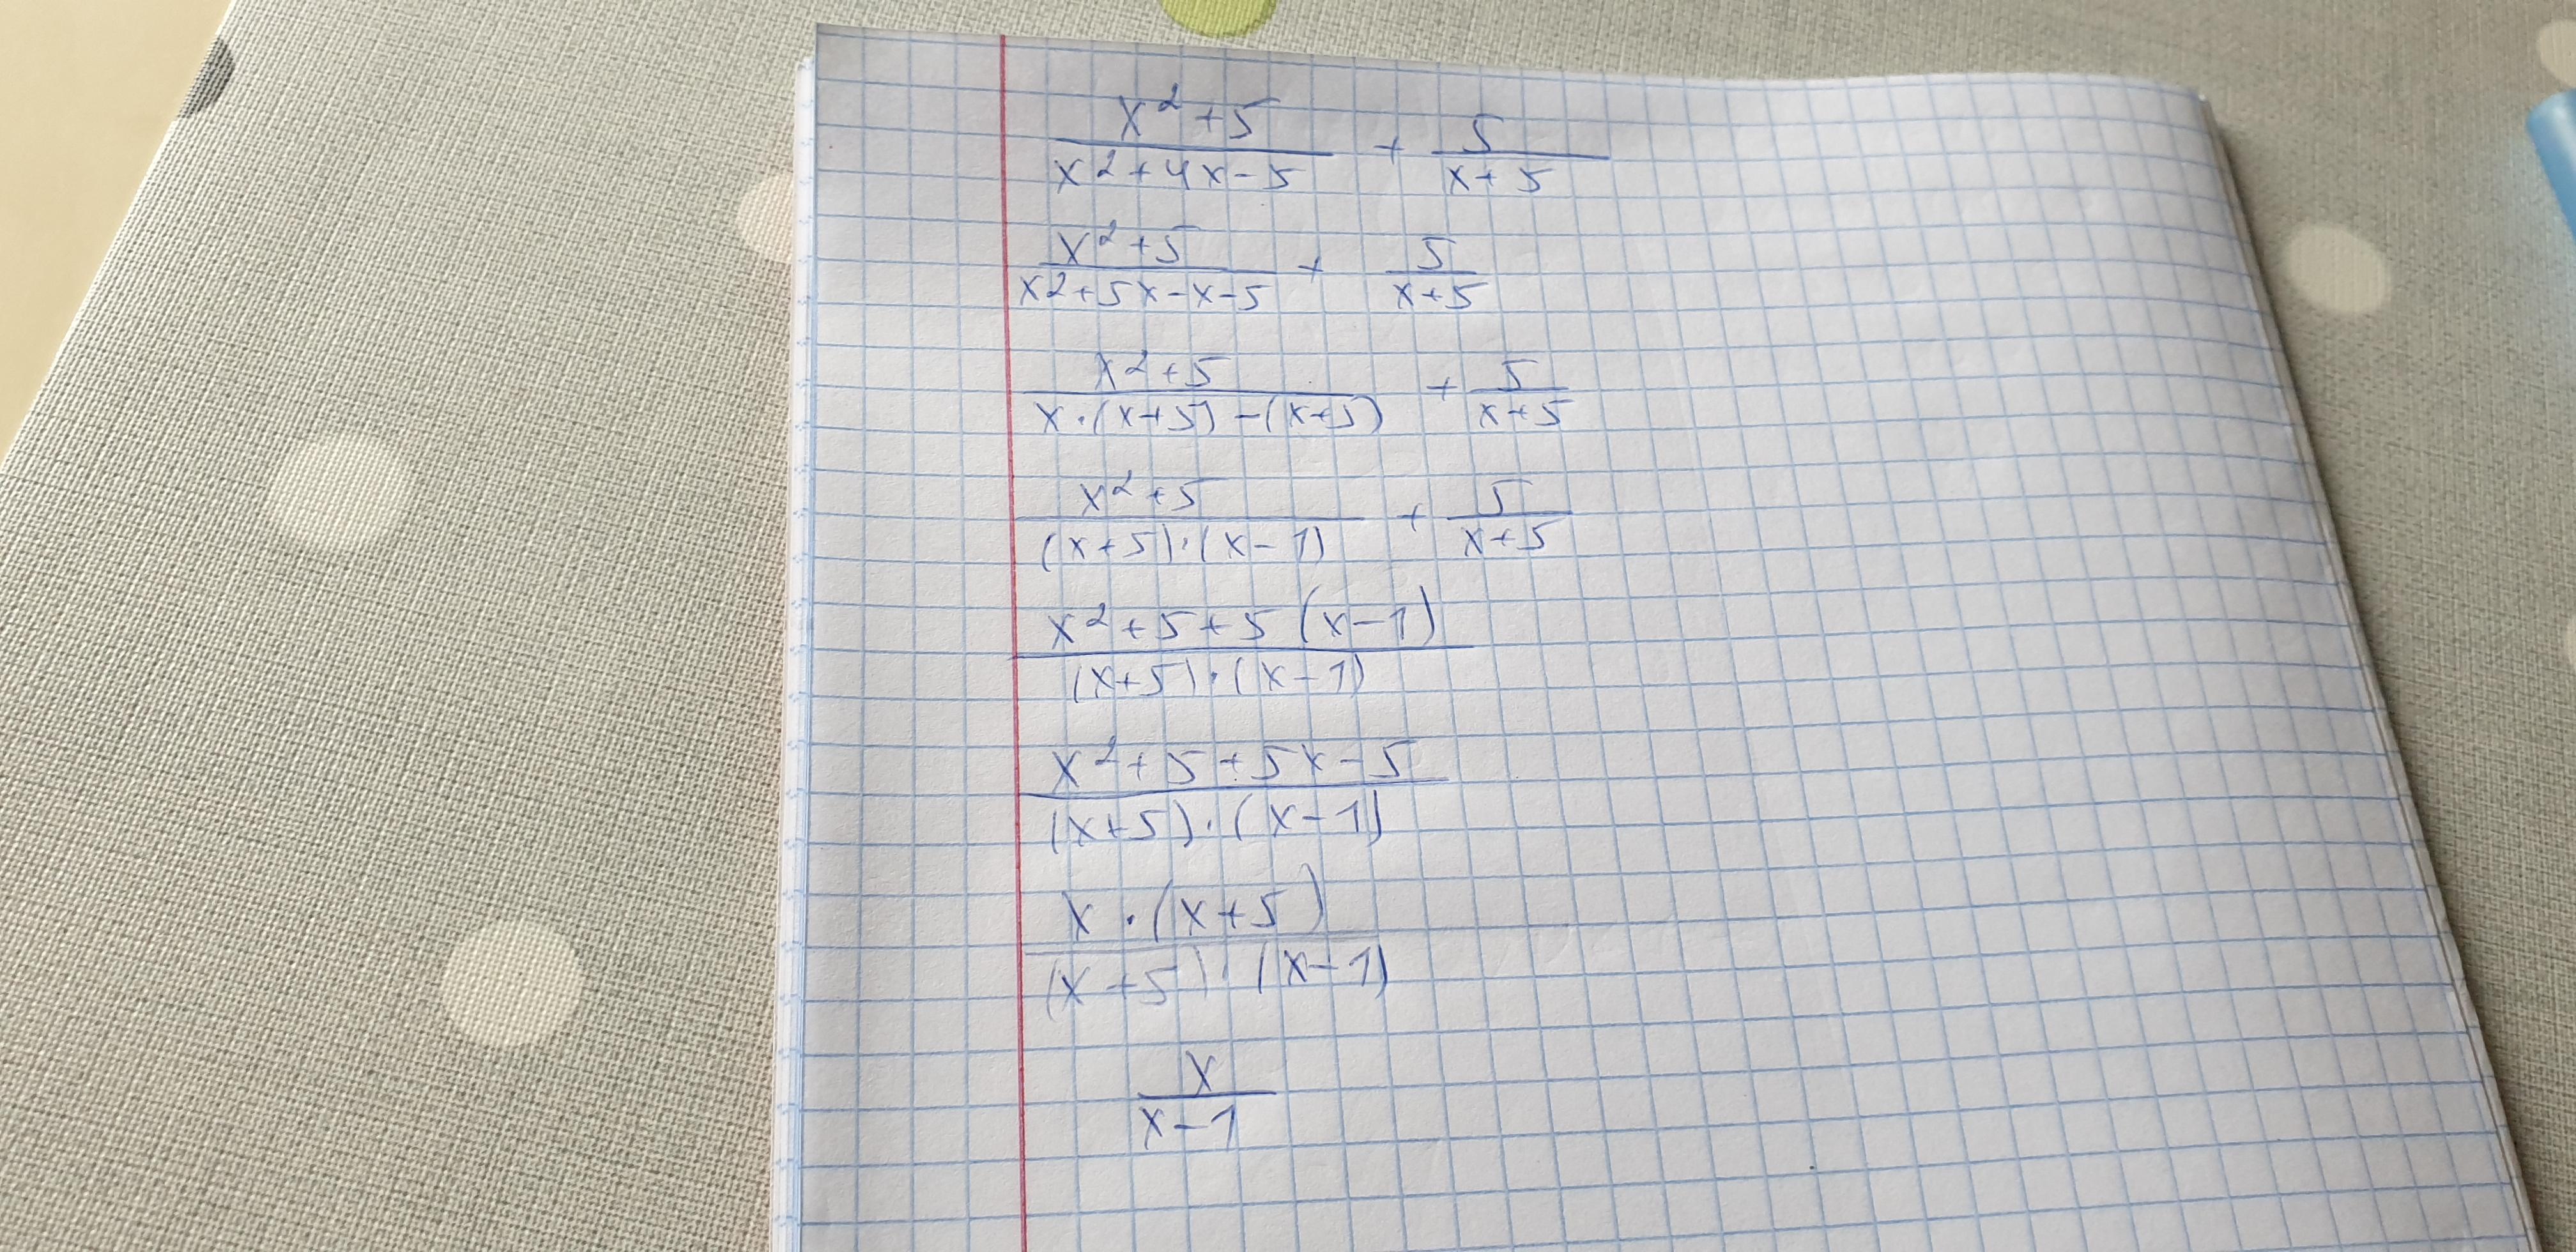 x² + 5 / x² + 4x - 5 + 5 / x + 5
x² + 5 / x2 + 5x - x - 5 + 5 / x + 5
x² + 5 / x · (x + 5) - (x + 5) + 5 / x + 5
x² + 5 / (x + 5) · (x - 1) + 5 / x + 5
x² + 5 + 5 (x - 1) / (x + 5) · (x - 1)
x² + 5 + 5x - 5 / (x + 5) · (x - 1)
x · (x + 5) / (x + 5) · (x - 1)
x / x - 1